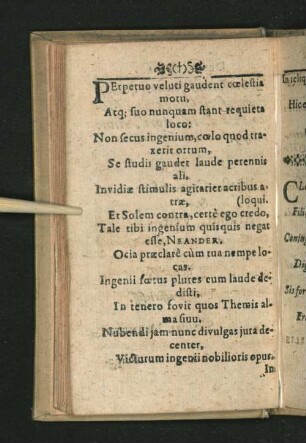 PErpetuo veluti gaudent cœlestia
motu,
Atq; suo nunquam stant requieta
loco:
Non secus ingenium, cœlo quod tra-
xerit ortum,
Se studii gaudet laude perennis
ali,
Invidiæ stimulis agitarier acribus a-
træ, (loqui.
Et Solem contra, certè ego credo,
Tale tibi ingenium quisquis negat
esse, NEANDER,
Ocia præclarè cùm tua nempe lo-
cas.
Ingenii fœtus plures cum laude de-
disti,
In tenero fovit quos Themis al-
ma sinu.
Nubendi jam nunc divulgas jura de-
center,
Victurum ingenii nobilioris opus.
In
In reliq
Hice
CL
Fili
Conjug
Dig
Sis for
Er